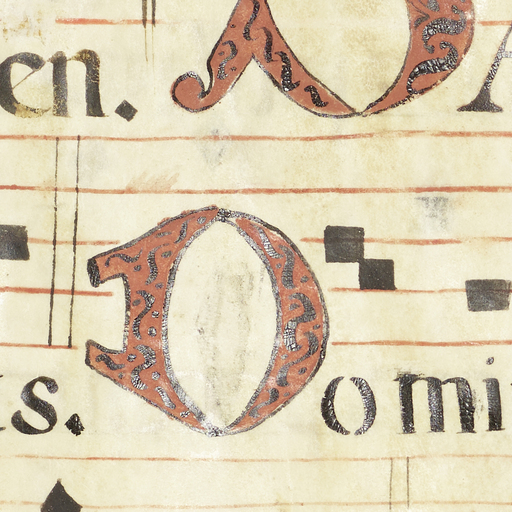 en. A
s. Domi